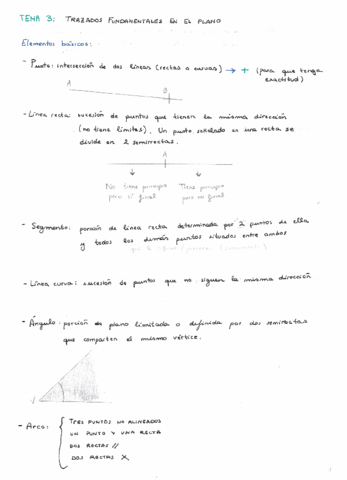 TEMA 3: TRAZADOS FUNDAMENTALES EN EL PLANO
Elementos básicos:
- Punto: intersección de dos líneas (rectas o curvas) → + (para que tenga
exactitud)
A
B
- Línea recta: sucesión de puntos que tienen la misma dirección
(no tiene límites). Un punto señalado en una recta se
divide en 2 semirrectas.
A
↓ ↓
No tiene principio Tiene principio
pero sí final pero no final
- Segmento: porción de línea recta determinada por 2 puntos de ella
y todos los demás puntos situados entre ambos
- Línea curva: sucesión de puntos que no siguen la misma dirección
- Ángulo: porción de plano limitada o definida por dos semirrectas
que comparten el mismo vértice.
V
- Arco: TRES PUNTOS NO ALINEADOS
UN PUNTO Y UNA RECTA
DOS RECTAS //
DOS RECTAS X